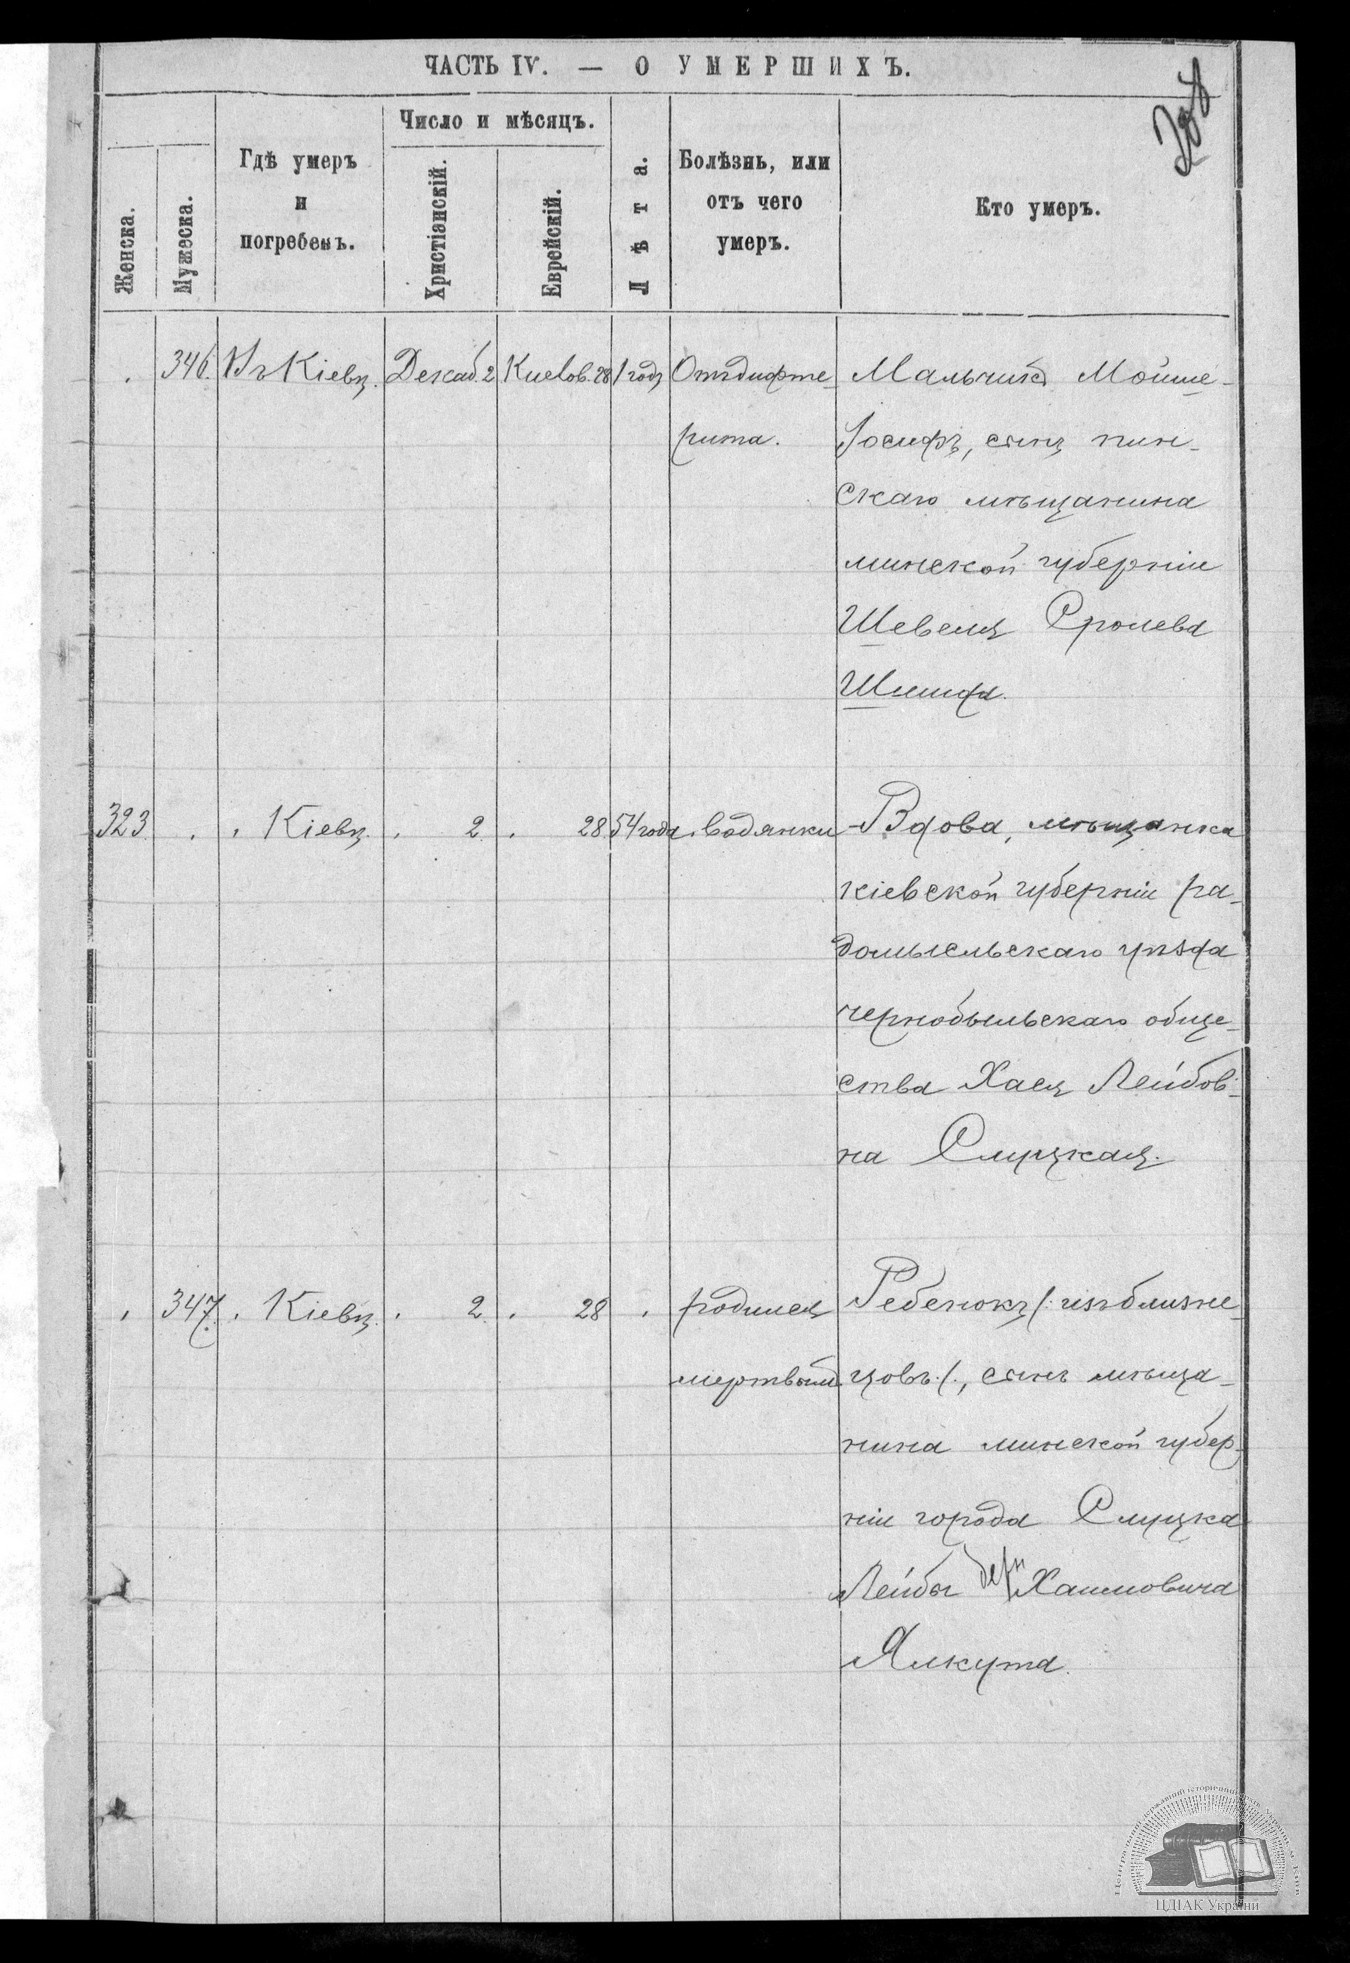 ЧАСТЬ IV. — О УМЕРШИХЪ.
Женска.
Мужеска.
Гдѣ умеръ
и
погребенъ.
Число и мѣсяцъ.
Христіанскій.
Еврейскій.
Лѣта.
Болѣзнь, или
отъ чего
умеръ.
Кто умеръ.
346. Въ Кіевѣ. Декаб. 2 Кислов. 28 1 годъ Отъ дифте- Мальчикъ Мойше-
рита. Іосифъ, сынъ пин-
скаго мѣщанина
минской губерніи
Шевеля Сролева
323 Кіевѣ. 2 28 54 года водянки Вдова, мѣщанка
кіевской губерніи ра-
домысльскаго уѣзда
чернобыльскаго обще-
ства Хася Лейбов-
на Слуцкая.
347. Кіевѣ. 2 28 родился Ребенокъ /: изъ близне-
мертвымъ цовъ :/, сынъ мѣща-
нина минской губер-
ніи города Слуцка
Лейбы Хаимовича
Ялкута.
ЦДІАК України